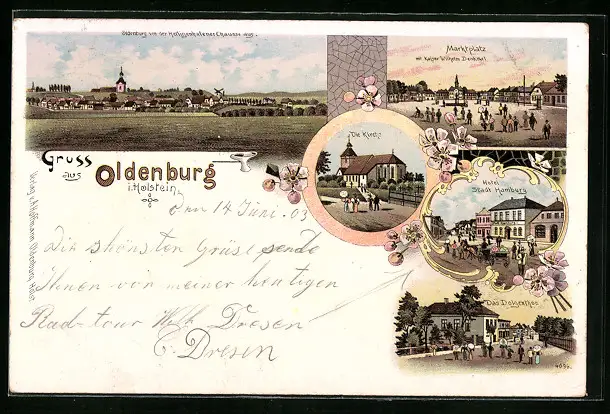 Oldenburg von der Heiligenhafener Chausee aus.
Marktplatz
mit Kaiser Wilhelm Denkmal.
Die Kirche
Hotel
Stadt Hamburg
Gruss
aus
Oldenburg
i. Holstein
Das Dobjenthor
4656.
den 14 Juni. 03
Die schönsten Grüse sende
Ihnen von meiner heutigen
Rad-tour Dresen
C. Dresen
Verlag v. Hoffmann, Oldenburg, Holst.